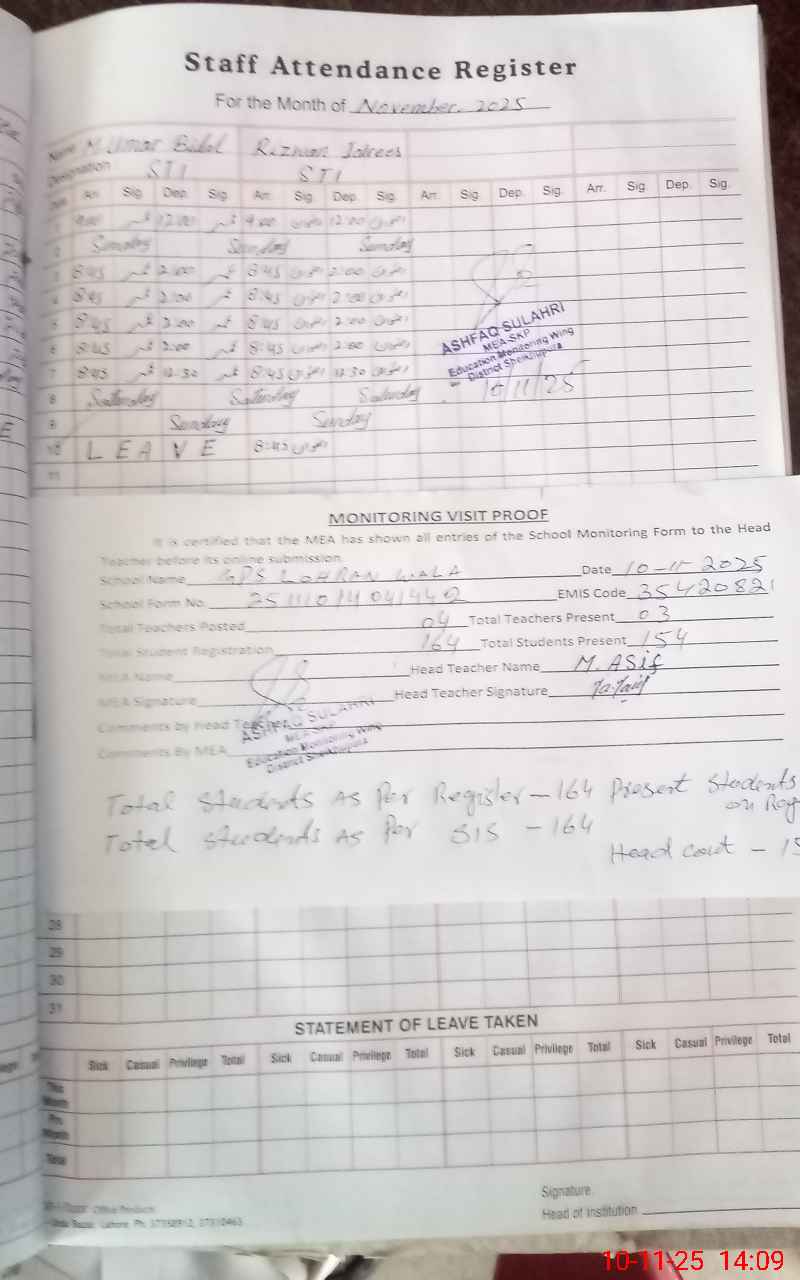 Staff Attendance Register
For the Month of November. 2025
Name M. Umar Bilal Rizwan Idrees
Designation STI STI
Arr. Sig. Dep. Sig. Arr. Sig. Dep. Sig. Arr. Sig. Dep. Sig. Arr. Sig. Dep. Sig.
1 9:00 12:00 9:00 12:00
2 Sunday Sunday Sunday
3 8:45 2:00 8:45 2:00
4 8:45 2:00 8:45 2:00
5 8:45 2:00 8:45 2:00
6 8:45 2:00 8:45 2:00
7 8:45 12:30 8:45 12:30
ASHFAQ SULAHRI
MEA-SKP
Education Monitoring Wing
District Sheikhupura
10/11/25
8 Saturday Saturday Saturday
9 Sunday Sunday
10 LEAVE 8:45
11
MONITORING VISIT PROOF
It is certified that the MEA has shown all entries of the School Monitoring Form to the Head
Teacher before its online submission.
School Name GPS LOHRAN WALA Date 10-11-2025
School Form No. EMIS Code 35420821
Total Teachers Posted 04 Total Teachers Present 03
Total Student Registration 164 Total Students Present 154
MEA Name Head Teacher Name M. ASif
MEA Signature Head Teacher Signature
Comments by Head Teacher
ASHFAQ SULAHRI
MEA-SKP
Comments By MEA
Education Monitoring Wing
District Sheikhupura
Total Students As Per Register - 164 Present Students
on Reg
Total Students As Per SIS - 164
Head cout - 15
28
29
30
31
STATEMENT OF LEAVE TAKEN
Sick Casual Privilege Total Sick Casual Privilege Total Sick Casual Privilege Total Sick Casual Privilege Total
This Month
Pre. Month
Total
Signature
Office Products
Head of Institution
Urdu Bazar, Lahore. Ph: 37310463
10-11-25 14:09